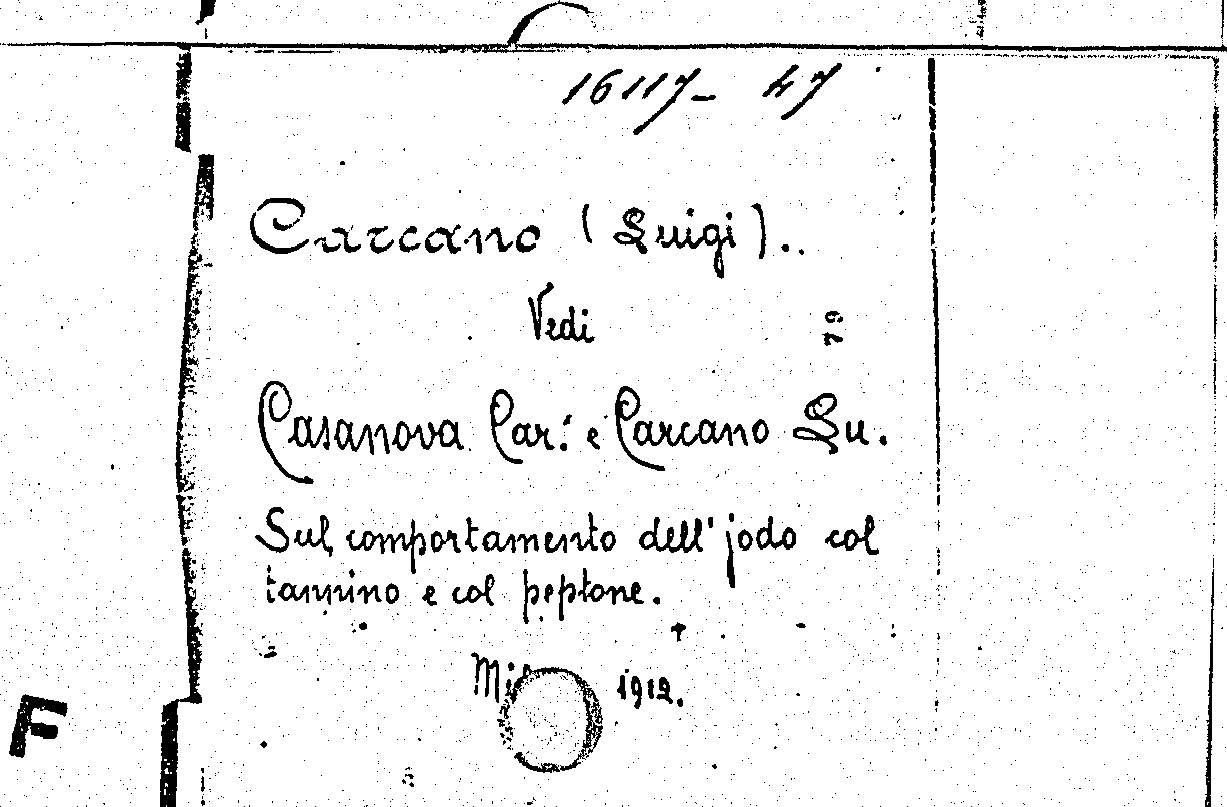 16117- 47
Carcano (Luigi)..
Vedi
79
Casanova Car: e Carcano Lu.
Sul comportamento dell' jodo col
tannino e col peptone.
1912.
F